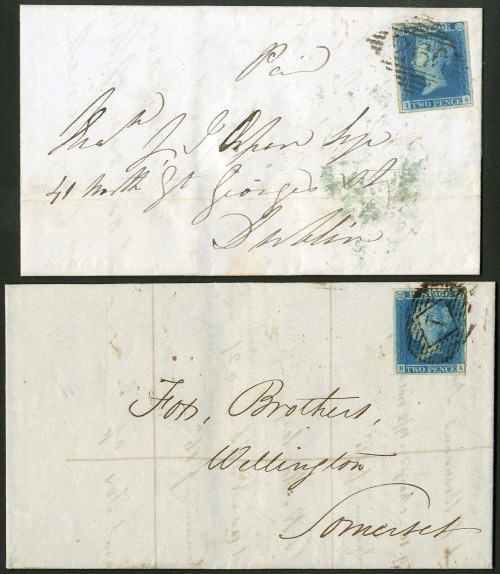 Paid
41 North Gt Georges St
Dublin
POSTAGE
TWO PENCE
Fox, Brothers,
Wellington
Somerset
POSTAGE
TWO PENCE